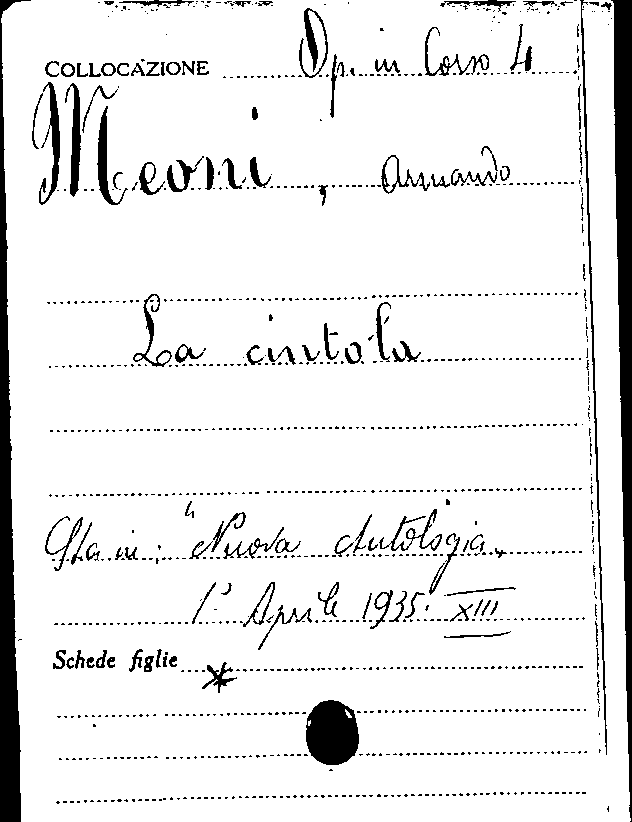 COLLOCAZIONE Op. in Corso 4
Meoni, Armando
La cintola
Sta in: "Nuova Antologia"
1° Aprile 1935. XIII
Schede figlie *